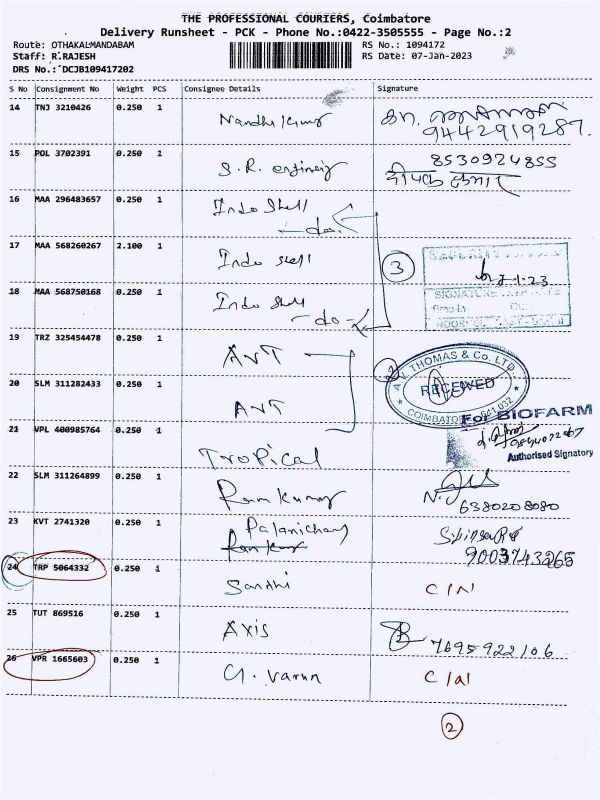 THE PROFESSIONAL COURIERS, Coimbatore
Delivery Runsheet - PCK - Phone No.:0422-3505555 - Page No.:2
Route: OTHAKALMANDABAM RS No.: 1094172
Staff: R.RAJESH RS Date: 07-Jan-2023
DRS No.: DCJB109417202
S No Consignment No Weight PCS Consignee Details Signature
14 TNJ 3210426 0.250 1 Nandhi Kumar
9442919287.
15 POL 3702391 0.250 1 S.R. 8530924855
16 MAA 296483657 0.250 1 Indo Shell
-do-
17 MAA 568260267 2.100 1 Indo Shell 3
7-1-23
18 MAA 568750168 0.250 1 Indo Shell SIGNATURE
-do-
19 TRZ 325454478 0.250 1 AVT
A.V. THOMAS & Co. LTD.
20 SLM 311282433 0.250 1 AVT RECEIVED
COIMBATORE - 641 032
For BIOFARM
21 VPL 400985764 0.250 1 Tropical
Authorised Signatory
22 SLM 311264899 0.250 1 Ram Kumar N.
6380208080
23 KVT 2741320 0.250 1 Palanichamy
Ram Kumar 9003743265
24 TRP 5064332 0.250 1 Santhi C/N
25 TUT 869516 0.250 1 Axis 7695922106
26 VPR 1665603 0.250 1 G. Varun C/N
2